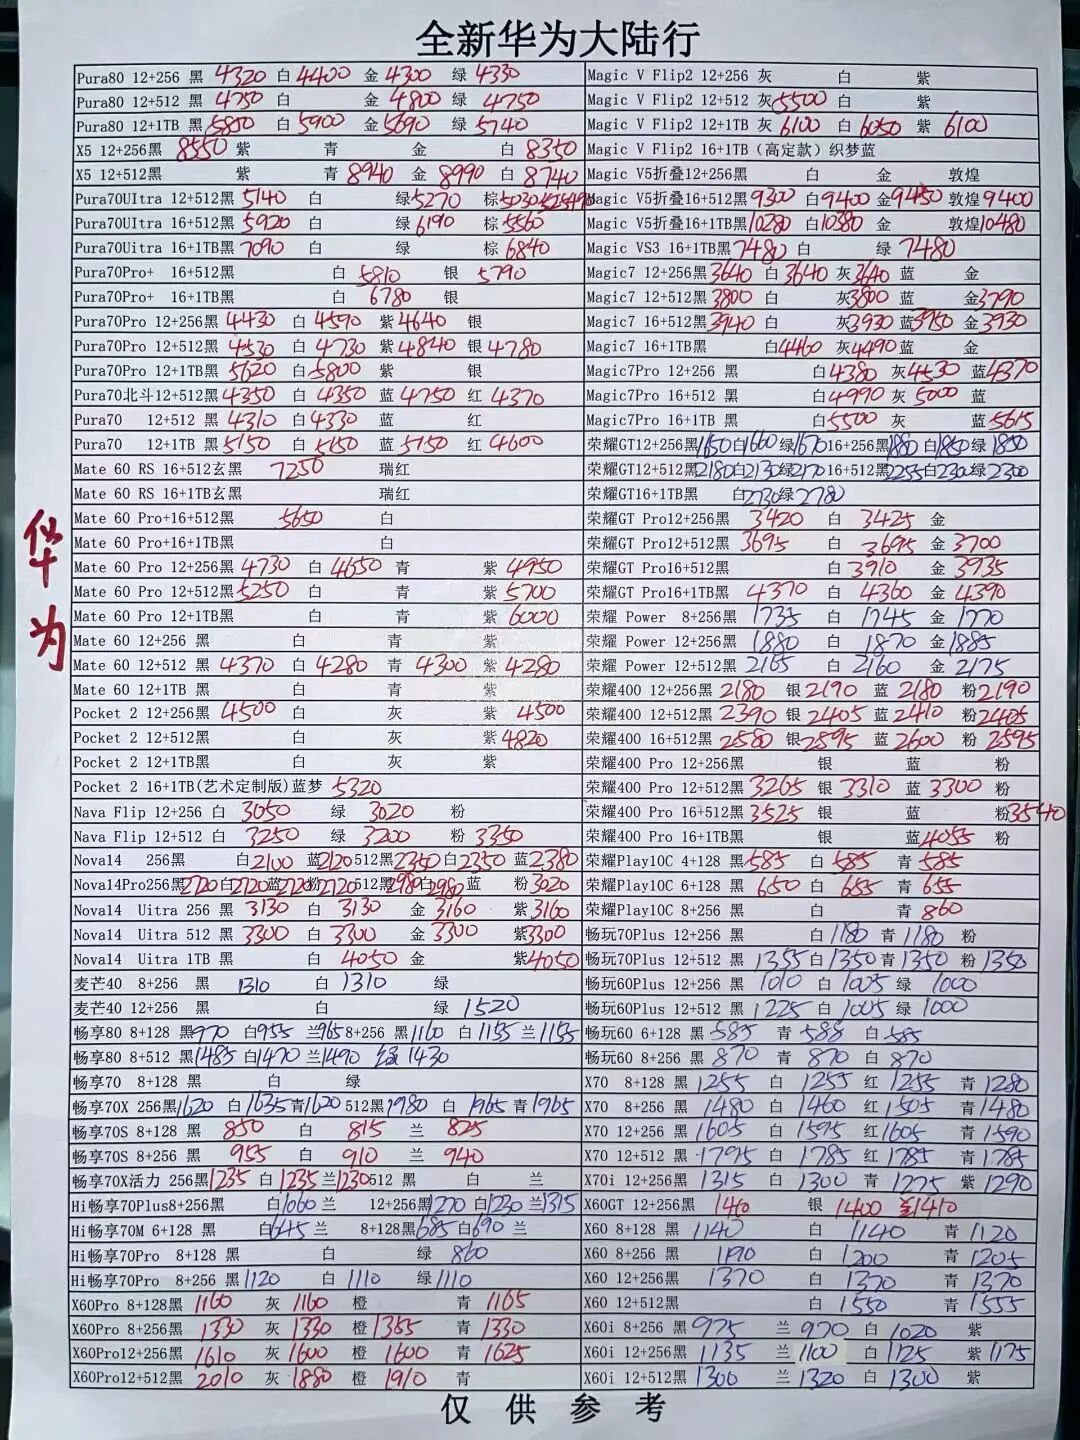 全新华为大陆行
华为
Pura80 12+256 黑 4320 白 4400 金 4300 绿 4330
Pura80 12+512 黑 4750 白 金 4800 绿 4750
Pura80 12+1TB 黑 5850 白 5900 金 5690 绿 5740
X5 12+256黑 8550 紫 青 金 白 8350
X5 12+512黑 紫 青 8940 金 8990 白 8740
Pura70UItra 12+512黑 5140 白 绿 5270 棕
Pura70UItra 16+512黑 5920 白 绿 6190 棕 5560
Pura70Uitra 16+1TB黑 7090 白 绿 棕 6840
Pura70Pro+ 16+512黑 白 5810 银 5790
Pura70Pro+ 16+1TB黑 白 6780 银
Pura70Pro 12+256黑 4430 白 4590 紫 4640 银
Pura70Pro 12+512黑 4530 白 4730 紫 4840 银 4780
Pura70Pro 12+1TB黑 5620 白 5800 紫 银
Pura70北斗12+512黑 4350 白 4350 蓝 4750 红 4370
Pura70 12+512 黑 4310 白 4330 蓝 红
Pura70 12+1TB 黑 5150 白 5150 蓝 5150 红 4600
Mate 60 RS 16+512玄黑 7250 瑞红
Mate 60 RS 16+1TB玄黑 瑞红
Mate 60 Pro+16+512黑 5650 白
Mate 60 Pro+16+1TB黑 白
Mate 60 Pro 12+256黑 4730 白 4650 青 紫 4950
Mate 60 Pro 12+512黑 5250 白 青 紫 5700
Mate 60 Pro 12+1TB黑 白 青 紫 6000
Mate 60 12+256 黑 白 青 紫
Mate 60 12+512 黑 4370 白 4280 青 4300 紫 4280
Mate 60 12+1TB 黑 白 青 紫
Pocket 2 12+256黑 4500 白 灰 紫 4500
Pocket 2 12+512黑 白 灰 紫 4820
Pocket 2 12+1TB黑 白 灰 紫
Pocket 2 16+1TB(艺术定制版)蓝梦 5320
Nava Flip 12+256 白 3050 绿 3020 粉
Nava Flip 12+512 白 3250 绿 3200 粉 3350
Nova14 256黑 白 2100 蓝 2120 512黑 2350 白 2350 蓝 2380
Nova14Pro256黑 2720 白 2720 蓝 2720 粉 2720 512黑 2980 白 2980 蓝 粉 3020
Nova14 Uitra 256 黑 3130 白 3130 金 3160 紫 3160
Nova14 Uitra 512 黑 3300 白 3300 金 3300 紫 3300
Nova14 Uitra 1TB 黑 白 4050 金 紫 4050
麦芒40 8+256 黑 1310 白 1310 绿
麦芒40 12+256 黑 白 绿 1520
畅享80 8+128 黑 970 白 955 兰 965 8+256 黑 1160 白 1155 兰 1155
畅享80 8+512 黑 1485 白 1470 兰 1490 绿 1430
畅享70 8+128 黑 白 绿
畅享70X 256黑 1620 白 1635 青 1620 512黑 1980 白 1965 青 1965
畅享70S 8+128 黑 850 白 815 兰 825
畅享70S 8+256 黑 955 白 910 兰 940
畅享70X活力 256黑 1235 白 1235 兰 1230 512 黑 白 兰
Hi畅享70Plus8+256黑 白 1660 兰 12+256黑 1270 白 1230 兰 1315
Hi畅享70M 6+128 黑 白 645 兰 8+128黑 685 白 690 兰
Hi畅享70Pro 8+128 黑 白 绿 860
Hi畅享70Pro 8+256 黑 1120 白 1110 绿 1110
X60Pro 8+128黑 1160 灰 1160 橙 青 1165
X60Pro 8+256黑 1330 灰 1330 橙 1355 青 1330
X60Pro12+256黑 1610 灰 1600 橙 1600 青 1625
X60Pro12+512黑 2010 灰 1880 橙 1910 青
Magic V Flip2 12+256 灰 白 紫
Magic V Flip2 12+512 灰 5500 白 紫
Magic V Flip2 12+1TB 灰 6100 白 6050 紫 6100
Magic V Flip2 16+1TB（高定款）织梦蓝
Magic V5折叠12+256黑 白 金 敦煌
Magic V5折叠16+512黑 9300 白 9400 金 9450 敦煌 9400
Magic V5折叠16+1TB黑 10280 白 10380 金 敦煌 10480
Magic VS3 16+1TB黑 7480 白 绿 7480
Magic7 12+256黑 3640 白 3640 灰 3640 蓝 金
Magic7 12+512黑 3800 白 灰 3800 蓝 金 3790
Magic7 16+512黑 3940 白 灰 3930 蓝 3950 金 3930
Magic7 16+1TB黑 白 4460 灰 4490 蓝 金
Magic7Pro 12+256 黑 白 4380 灰 4530 蓝 4370
Magic7Pro 16+512 黑 白 4990 灰 5000 蓝
Magic7Pro 16+1TB 黑 白 5500 灰 蓝 5615
荣耀GT12+256黑 1650 白 1660 绿 1670 16+256黑 1880 白 1850 绿 1850
荣耀GT12+512黑 2180 白 2130 绿 2170 16+512黑 2255 白 2300 绿 2300
荣耀GT16+1TB黑 白 2730 绿 2780
荣耀GT Pro12+256黑 3420 白 3425 金
荣耀GT Pro12+512黑 3695 白 3695 金 3700
荣耀GT Pro16+512黑 白 3910 金 3935
荣耀GT Pro16+1TB黑 4370 白 4360 金 4390
荣耀 Power 8+256黑 1735 白 1745 金 1770
荣耀 Power 12+256黑 1880 白 1870 金 1885
荣耀 Power 12+512黑 2165 白 2160 金 2175
荣耀400 12+256黑 2180 银 2190 蓝 2180 粉 2190
荣耀400 12+512黑 2390 银 2405 蓝 2410 粉 2405
荣耀400 16+512黑 2580 银 2595 蓝 2600 粉 2595
荣耀400 Pro 12+256黑 银 蓝 粉
荣耀400 Pro 12+512黑 3265 银 3310 蓝 3300 粉
荣耀400 Pro 16+512黑 3525 银 蓝 粉 3540
荣耀400 Pro 16+1TB黑 银 蓝 4055 粉
荣耀Play10C 4+128 黑 585 白 585 青 585
荣耀Play10C 6+128 黑 650 白 655 青 655
荣耀Play10C 8+256 黑 白 青 860
畅玩70Plus 12+256 黑 白 1180 青 1180 粉
畅玩70Plus 12+512 黑 1355 白 1350 青 1350 粉 1350
畅玩60Plus 12+256 黑 1010 白 1005 绿 1000
畅玩60Plus 12+512 黑 1225 白 1005 绿 1000
畅玩60 6+128 黑 585 青 588 白 585
畅玩60 8+256 黑 870 青 870 白 870
X70 8+128 黑 1255 白 1255 红 1255 青 1280
X70 8+256 黑 1480 白 1460 红 1505 青 1480
X70 12+256 黑 1605 白 1595 红 1605 青 1590
X70 12+512 黑 1795 白 1785 红 1785 青 1785
X70i 12+256黑 1315 白 1300 青 1275 紫 1290
X60GT 12+256黑 1410 银 1400 兰 1410
X60 8+128黑 1140 白 1140 青 1120
X60 8+256 黑 1190 白 1200 青 1205
X60 12+256黑 1370 白 1370 青 1370
X60 12+512黑 白 1550 青 1555
X60i 8+256 黑 975 兰 970 白 1020 紫
X60i 12+256黑 1135 兰 1100 白 1125 紫 1175
X60i 12+512黑 1300 兰 1320 白 1300 紫
仅供参考